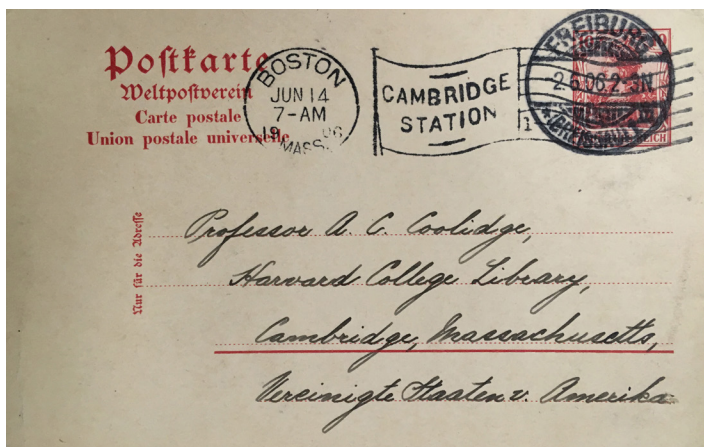 Postkarte
Weltpostverein
Carte postale
Union postale universelle
BOSTON
JUN 14
7-AM
1906
MASS.
CAMBRIDGE
STATION
1
FREIBURG
2.6.06.2-3N
(BREISGAU)
REICH
Nur für die Adresse
Professor A. C. Coolidge,
Harvard College Library,
Cambridge, Massachusetts,
Vereinigte Staaten v. Amerika